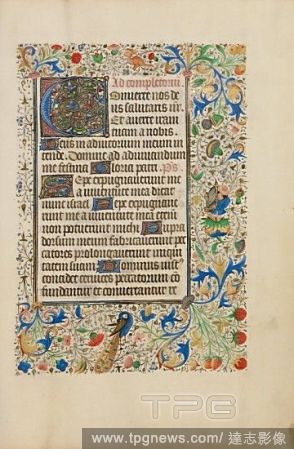 Ad completorium
Converte nos de
us salutaris nr
Et averte iram
tuam a nobis
Deus in adiutorium meum in
tende Domine ad adiuvandum
me festina Gloria patri Ps
Sepe expugnaverunt me
a iuventute mea dicat
nunc israel Sepe expugnave
runt me a iuventute mea etenim
non potuerunt michi Supra
dorsum meum fabricaverunt pec
catores prolongaverunt iniqui
tatem suam Dominus iustus
concidet cervices peccatorum co
fundantur et convertantur re
TPG
www.tpgnews.com / 達志影像